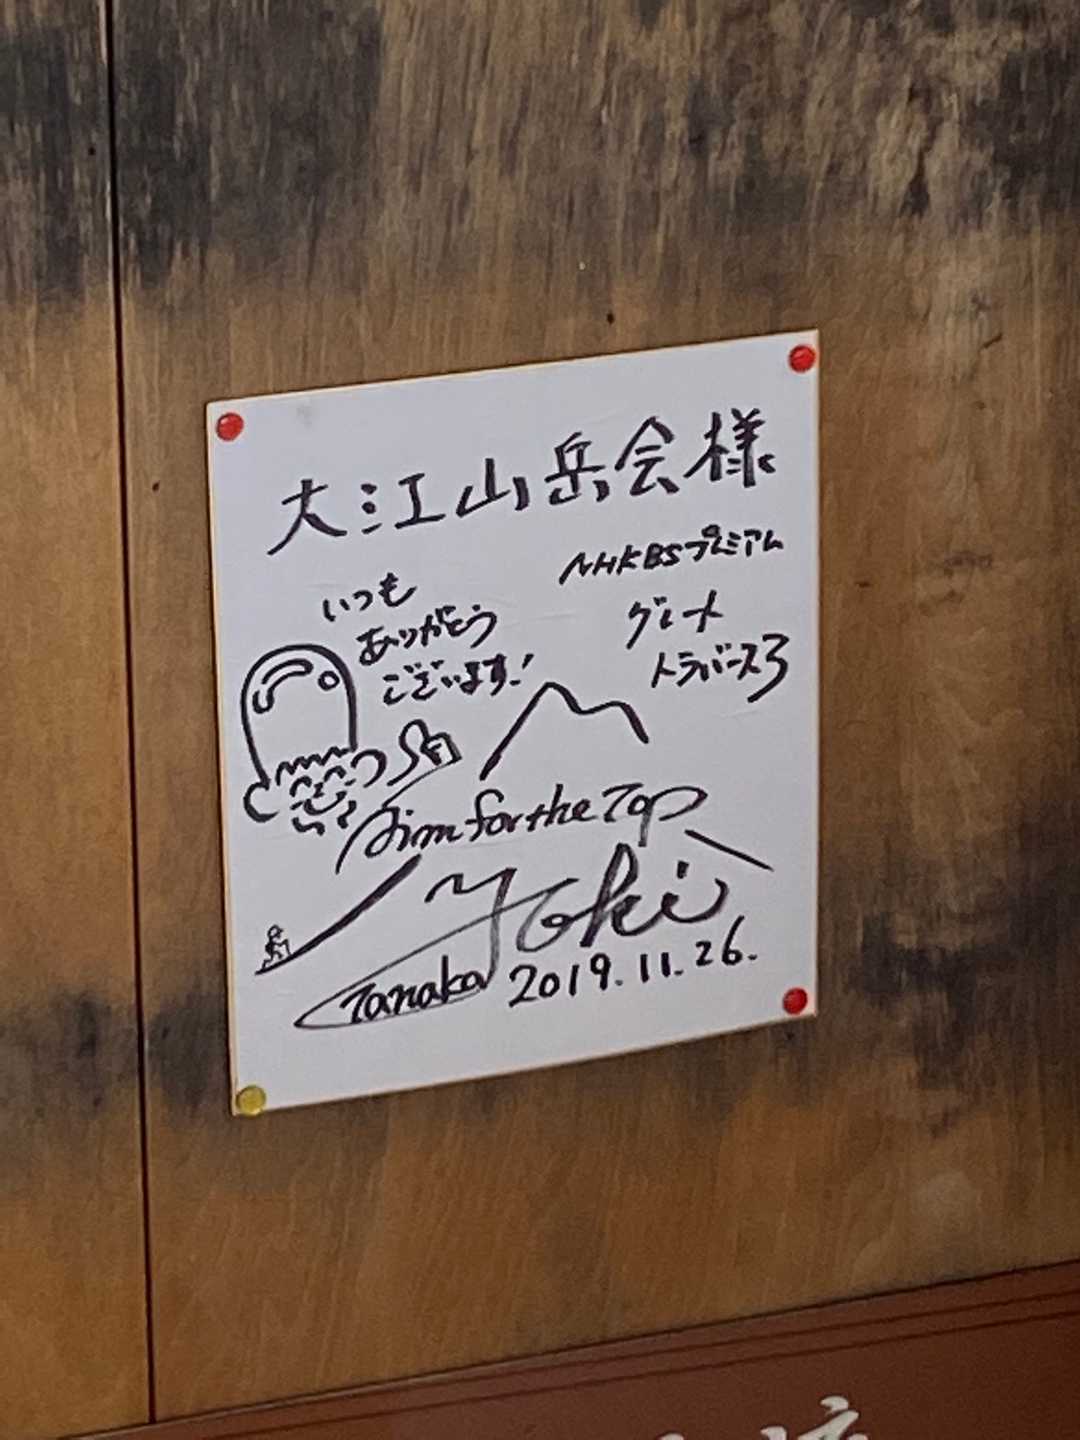 大江山岳会様
NHKBSプレミアム
グレート
トラバース3
いつも
ありがとう
ございます!
Aim for the Top
Yoki
Tanaka
2019.11.26.